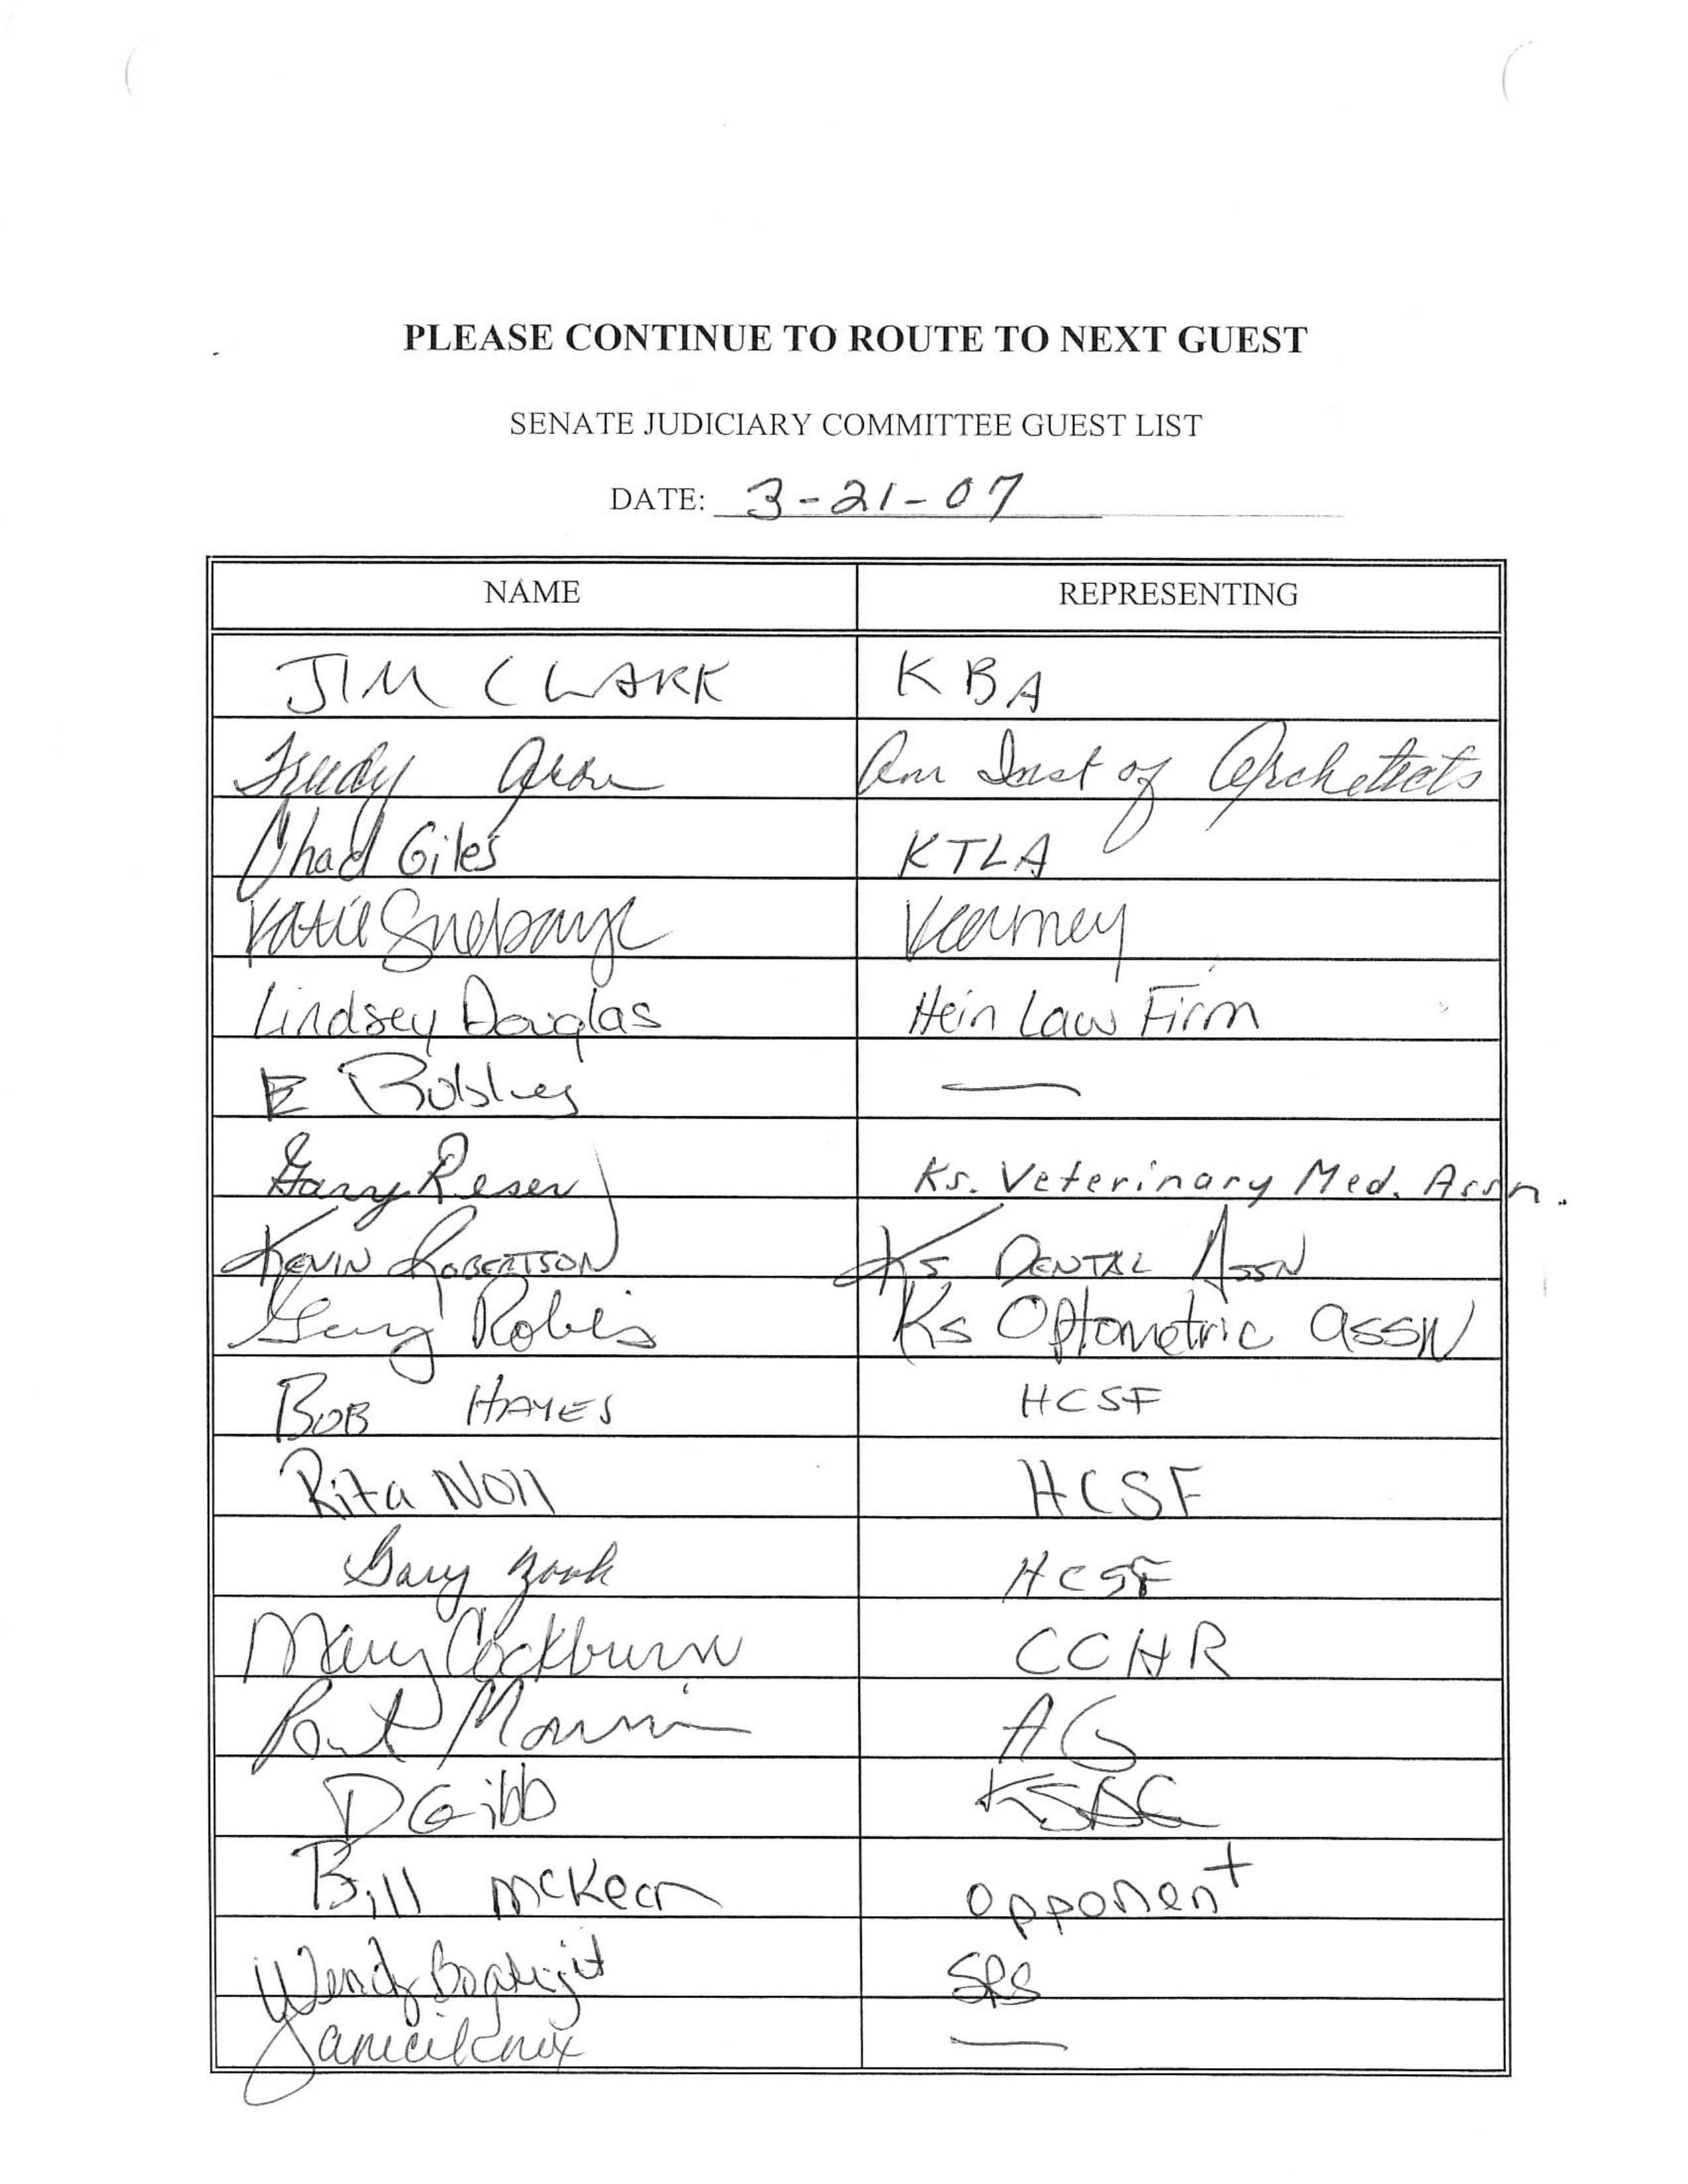 PLEASE CONTINUE TO ROUTE TO NEXT GUEST
SENATE JUDICIARY COMMITTEE GUEST LIST
DATE: 3-21-07
NAME REPRESENTING
JIM CLARK KBA
Trudy Aron Am Inst of Architects
Chad Giles KTLA
Katie Kearney
Lindsey Douglas Hein Law Firm
E —
Gary Reser Ks. Veterinary Med. Assn.
KEVIN ROBERTSON KS DENTAL ASSN
Gary Robbins Ks Optometric ASSN
BOB HAYES HCSF
Rita Noll HCSF
Gary Zook HCSF
Mary Cockburn CCHR
Paul Morrison AG
D Gibb KSAG
Bill McKean opponent
Wendy SRS
—